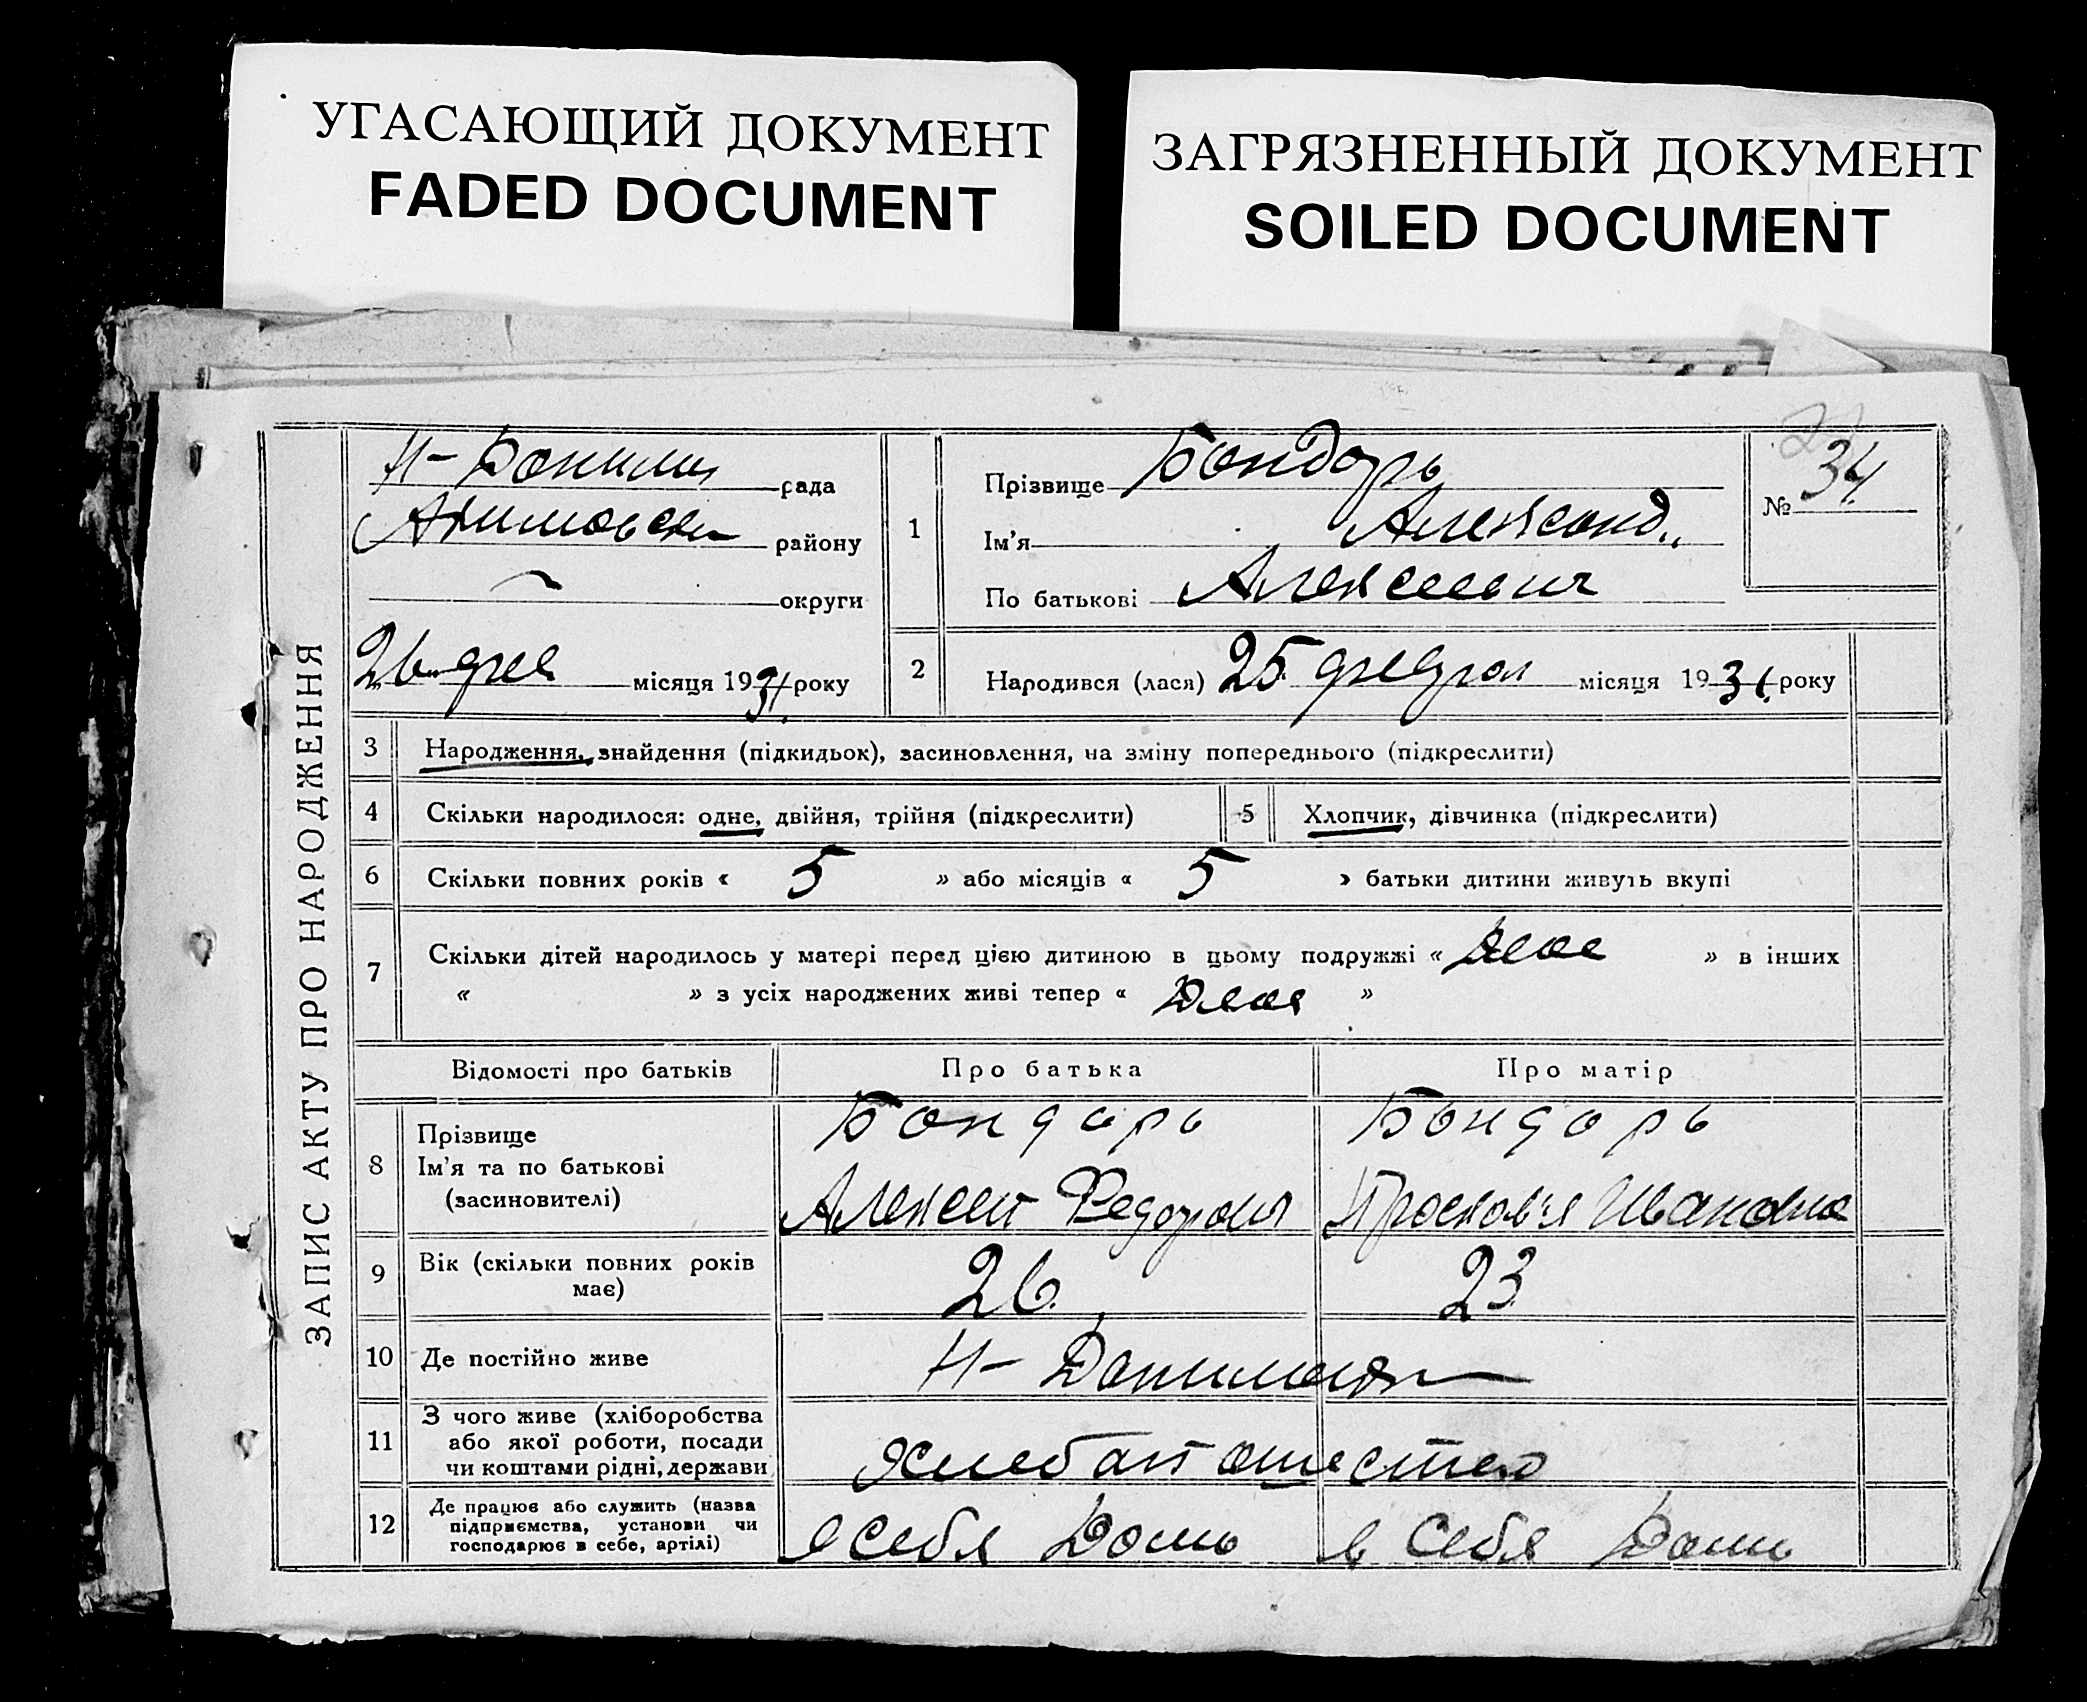 УГАСАЮЩИЙ ДОКУМЕНТ
FADED DOCUMENT
ЗАГРЯЗНЕННЫЙ ДОКУМЕНТ
SOILED DOCUMENT
ЗАПИС АКТУ ПРО НАРОДЖЕННЯ
Н- рада
району
округи
26 фев місяця 1931. року
1
Прізвище Бондарь
Ім'я Александ.,
По батькові Алексеевич
№ 34
2 Народився (лася) 25 феврал місяця 1931. року
3 Народження, знайдення (підкидьок), засиновлення, на зміну попереднього (підкреслити)
4 Скільки народилося: одне, двійня, трійня (підкреслити) 5 Хлопчик, дівчинка (підкреслити)
6 Скільки повних років « 5 » або місяців « 5 » батьки дитини живуть вкупі
7 Скільки дітей народилось у матері перед цією дитиною в цьому подружжі « » в інших
« » з усіх народжених живі тепер « »
Відомості про батьків Про батька Про матір
8 Прізвище
Ім'я та по батькові
(засиновителі)
Бондарь
Алексей Федорович
Бондарь
Прасковья Ивановна
9 Вік (скільки повних років
має)
26. 23
10 Де постійно живе Н-
11 З чого живе (хліборобства
або якої роботи, посади
чи коштами рідні, держави
12 Де працює або служить (назва
підприємства, установи чи
господарює в себе, артілі)
себя себя